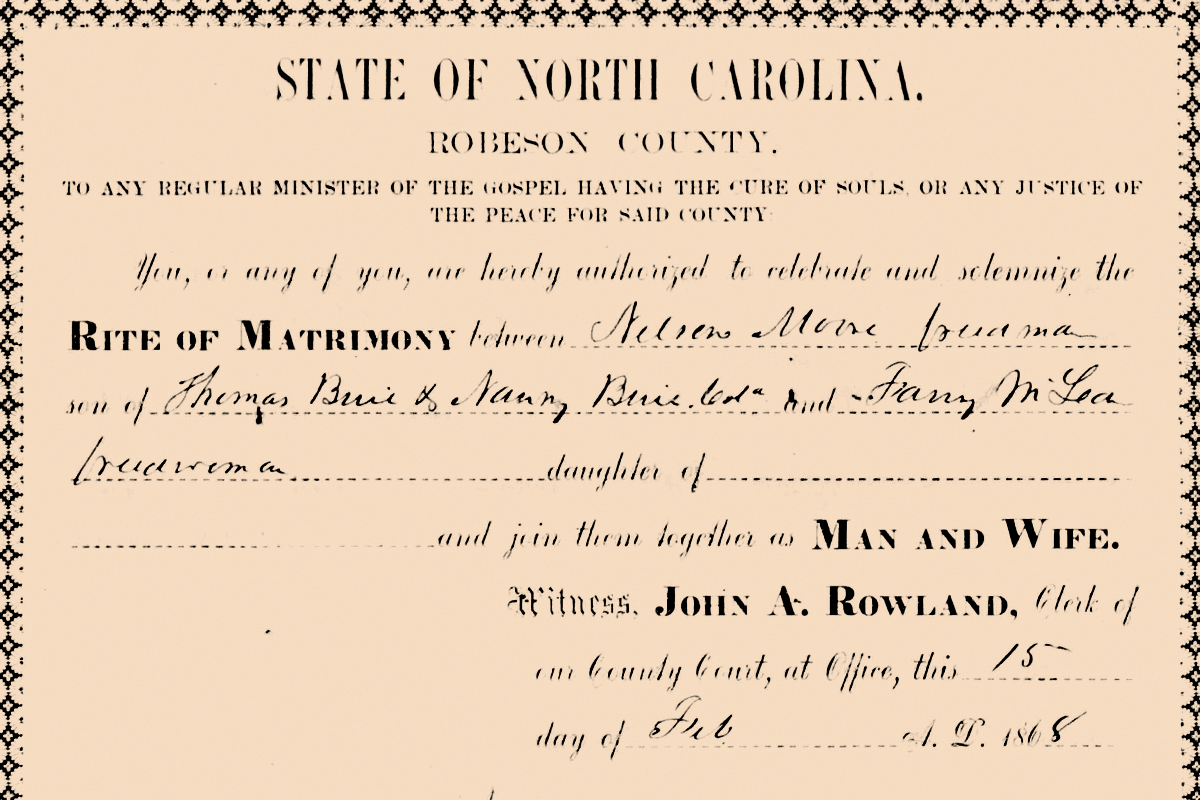 STATE OF NORTH CAROLINA.
ROBESON COUNTY.
TO ANY REGULAR MINISTER OF THE GOSPEL HAVING THE CURE OF SOULS, OR ANY JUSTICE OF
THE PEACE FOR SAID COUNTY:
You, or any of you, are hereby authorized to celebrate and solemnize the
RITE OF MATRIMONY between Nelson Moore freedman
son of Thomas Buie & Nanny Buie Cold and Fanny McLea
freedwoman daughter of
and join them together as MAN AND WIFE.
Witness, JOHN A. ROWLAND, Clerk of
our County Court, at Office, this 15
day of Feb A. D. 1868